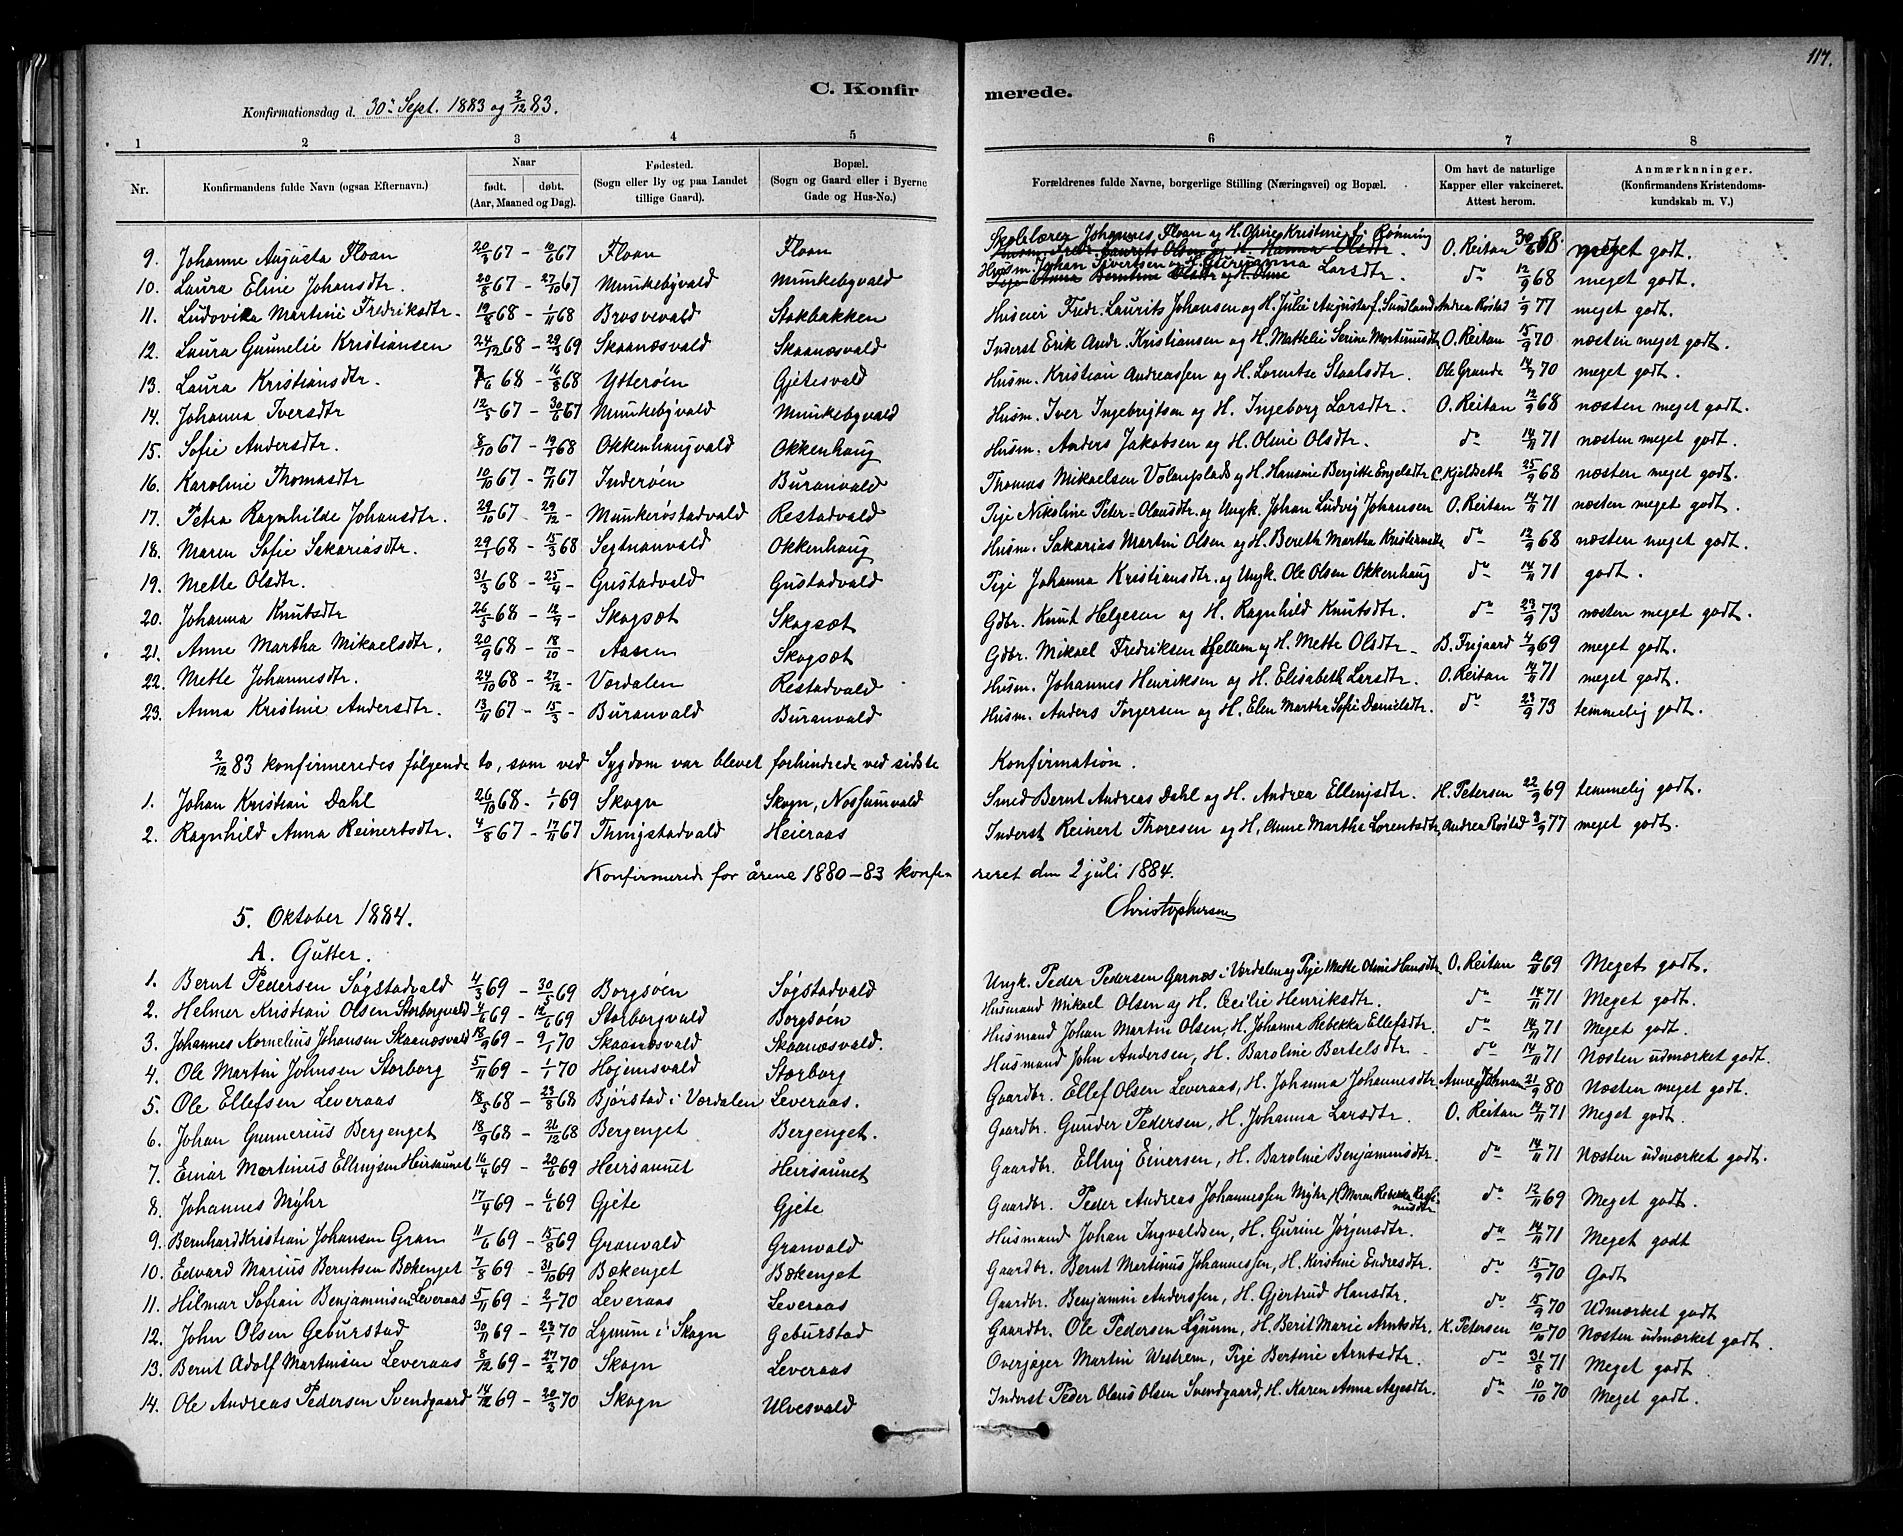 117.
C. Konfirmerede.
Konfirmationsdag d. 30te Sept. 1883 og 2/12 83.
1 2 3 4 5 6 7 8
Nr. Konfirmandens fulde Navn (ogsaa Efternavn.) Naar født. døbt. (Aar, Maaned og Dag). Fødested. (Sogn eller By og paa Landet tillige Gaard). Bopæl. (Sogn og Gaard eller i Byerne Gade og Hus-No.) Forældrenes fulde Navne, borgerlige Stilling (Næringsvei) og Bopæl. Om havt de naturlige Kapper eller vakcineret. Attest herom. Anmærkninger. (Konfirmandens Kristendomskundskab m. V.)
9. Johanne Augusta Floan 20/5 67 - 10/6 67 Floan Floan Skolelærer Johannes Floan og H. Oline Kristine f. Rønning O. Reitan 68 meget godt.
10. Laura Eline Johansdtr. 20/8 67 - 27/10 67 Munkebyvald Munkebyvald Husm. Johan Sivertsen og Gurianna Larsdtr. do 12/9 68 meget godt.
11. Ludovika Martine Fredriksdtr. 19/8 68 - 1/11 68 Brosvevald Stokbakken Huseier Fredr. Laurits Johansen og H. Julie Augusta f. Sundland Andrea Røstad 1/9 77 meget godt.
12. Laura Gunnelie Kristiansen 24/12 68 - 29/3 69 Skaanæsvald Skaanæsvald Inderst Erik Andr. Kristiansen og H. Mattelie Serine Martinusdtr O. Reitan 15/9 70 næsten meget godt.
13. Laura Kristiansdtr. 7/6 68 - 16/8 68 Ytterøen Gjetesvald Husm. Kristian Andreassen og H. Lorentse Staalsdtr. Ole Grande 14/9 70 meget godt.
14. Johanna Iversdtr 12/5 67 - 30/6 67 Munkebyvald Munkebyvald Husm. Iver Ingebrigtsen og H. Ingeborg Larsdtr. O. Reitan 12/9 68 næsten meget godt.
15. Sofie Andersdtr. 8/10 67 - 19/1 68 Okkenhaugvald Okkenhaug Husm. Anders Jakobsen og H. Oline Olsdtr. do 14/11 71 næsten meget godt.
16. Karoline Thomasdtr 10/10 67 - 17/11 67 Inderøen Buranvald Thomas Mikaelsen Volangplads og H. Hansine Bergitte Engelsdtr C. Kjeldseth 25/9 68 næsten meget godt.
17. Petra Ragnhilde Johansdtr. 29/10 67 - 29/12 - Munkrøstadvald Restadvald Pige Nikoline Peter-Olausdtr. og Ungk. Johan Ludvig Johansen O. Reitan 14/11 71 næsten meget godt.
18. Maren Sofie Sakariasdtr. 29/1 68 - 15/3 68 Segtnanvald Okkenhaug Husm. Sakarias Martin Olsen og H. Bereth Martha Kristiansdtr do 12/9 68 næsten meget godt.
19. Mette Olsdtr. 31/3 68 - 25/4 - Gustadvald Gustadvald Pige Johanna Kristiansdtr. og Ungk. Ole Olsen Okkenhaug do 14/11 71 godt.
20. Johanna Knutsdtr 26/5 68 - 12/7 - Skogsæt Skogsæt Gdbr. Knut Helgesen og H. Ragnhild Knutsdtr. do 23/9 73 næsten meget godt.
21. Anne Martha Mikaelsdtr. 20/9 68 - 18/10 - Aasen Skogsæt Gdbr. Mikael Fredriksen Hjellem og H. Mette Olsdtr B. Fiigaard 4/9 69 meget godt.
22. Mette Johannesdtr. 24/10 68 - 27/12 - Værdalen Restadvald Husm. Johannes Henriksen og H. Elisabeth Larsdtr. O. Reitan 14/11 71 meget godt.
23. Anna Kristine Andersdtr. 13/11 67 - 15/3 - Buranvald Buranvald Husm. Anders Torgersen og H. Elen Martha Sofie Danielsdtr. do 23/9 73 temmelig godt.
2/12 83 konfirmeredes følgende to, som ved Sygdom var blevet forhindrede ved sidste Konfirmation.
1. Johan Kristian Dahl 26/10 68 - 1/1 69 Skogn Skogn, Nossumvald Smed Bernt Andreas Dahl og H. Andrea Ellingsdtr. H. Petersen 22/9 69 temmelig godt.
2. Ragnhild Anna Reinertsdtr. 4/8 67 - 17/11 67 Thingstadvald Heieraas Inderst Reinert Thoresen og H. Anne Martha Lorentsdtr, Andrea Røstad 3/9 77 meget godt.
Konfirmerede for årene 1880-83 konfereret den 2 juli 1884.
Christophersen
5. Oktober 1884.
A. Gutter.
1. Bernt Pedersen Søgstadvald 4/3 69 - 30/5 69 Borgsøen Søgstadvald Ungk. Peder Pedersen Garnæs i Værdalen og Pige Mette Oline Hansdtr O. Reitan 12/11 69 Meget godt.
2. Helmer Kristian Olsen Storborgvald 4/6 69 - 69 Storborgvald Borgsøen Husmand Mikael Olsen og H. Cecilie Henriksdtr. do 14/11 71 Meget godt.
3. Johannes Kornelius Johansen Skaanæsvald 18/9 69 - 9/1 70 Skaanæsvald Skaanæsvald. Husmand Johan Martin Olsen, H. Johanna Rebekka Ellefsdtr. do 14/11 71 Meget godt.
4. Ole Martin Johnsen Storborg 5/11 69 - 1/1 70 Højemsvald Storborg Husmand John Andersen, H. Baroline Bertelsdtr do 14/11 71 Næsten udmærket godt.
5. Ole Ellefsen Leveraas 18/5 68 - 23/8 68 Bjørstad i Værdalen Leveraas. Gaardbr. Ellef Olsen Leveraas, H. Johanna Johannesdtr Anne Johnsen 21/9 80 Næsten meget godt.
6. Johan Gunnerius Bergenget 18/9 68 - 26/12 68 Bergenget Bergenget. Gaardbr. Gunder Pedersen, H. Johanna Larsdtr. O. Reitan 14/11 71 Meget godt.
7. Einar Martinus Ellingsen Heirsaunet 16/4 69 - 20/6 69 Heirsaunet Heirsaunet Gaardbr. Elling Einersen, H. Baroline Benjaminsdtr. do 14/11 71 Næsten udmærket godt.
8. Johannes Myhr 17/4 69 - 6/6 69 Gjete Gjete Gaardbr. Peder Andreas Johannessen Myhr, H. Maren Rebekka Rasmusdtr do 12/11 69 Meget godt.
9. Bernhard Kristian Johansen Gran 11/6 69 - 15/8 69 Granvald Granvald Husmand Johan Ingvaldsen, H. Gurine Jørgensdtr. do 14/11 71 Meget godt
10. Edvard Marius Berntsen Bækenget 7/8 69 - 31/10 69 Bækenget Bækenget Gaardbr. Bernt Martinus Johannessen, H. Kristine Endresdtr. do 15/9 70 Godt
11. Hilmar Sofian Benjaminsen Leveraas 5/11 69 - 2/1 70 Leveraas Leveraas Gaardbr. Benjamin Anderssen, H. Gjertrud Hansdtr. do 15/9 70 Udmærket godt
12. John Olsen Geburstad 30/11 69 - 23/1 70 Lynum i Skogn Geburstad Gaardbr. Ole Pedersen Lynum, H. Berit Marie Arntsdtr. K. Petersen 10/10 70 Næsten udmærket godt.
13. Bernt Adolf Martinsen Leveraas 8/12 69 - 27/2 70 Skogn Leveraas Overjæger Martin Westrem, Pige Bertine Arntsdtr. do 31/8 71 Meget godt
14. Ole Andreas Pedersen Svendgaard 14/12 69 - 20/3 70 Skogn Ulvesvald Inderst Peder Olaus Olsen Svendgaard, H. Karen Anna Aagesdtr. do 10/10 70 Meget godt.